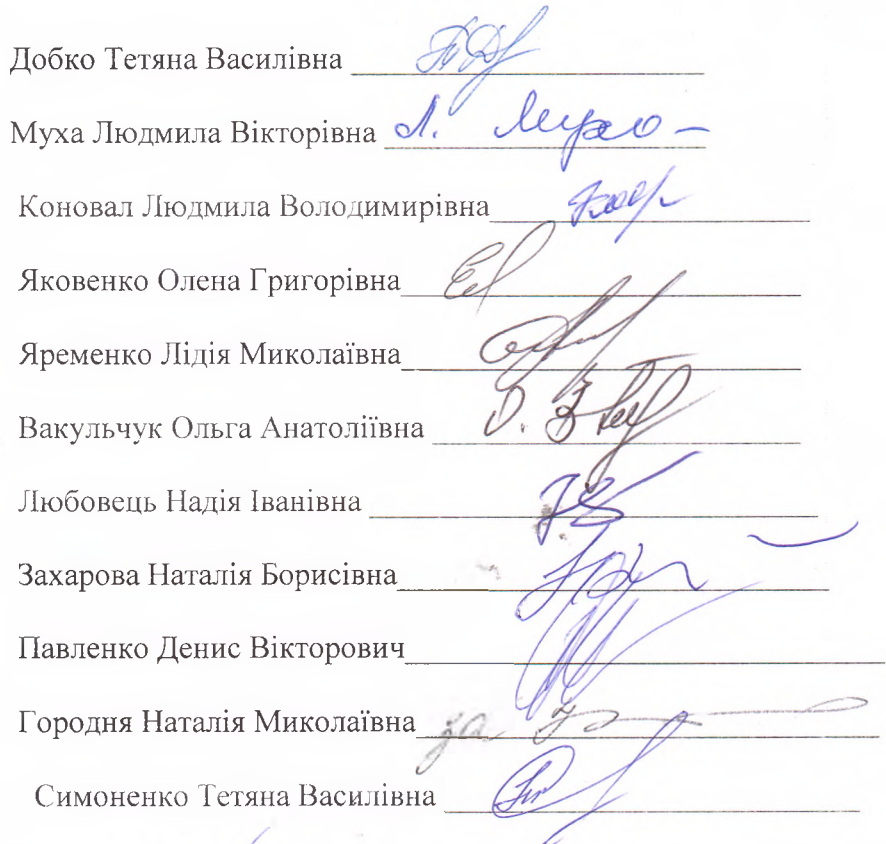 Добко Тетяна Василівна
Муха Людмила Вікторівна Л. Мухо
Коновал Людмила Володимирівна
Яковенко Олена Григорівна
Яременко Лідія Миколаївна
Вакульчук Ольга Анатоліївна
Любовець Надія Іванівна
Захарова Наталія Борисівна
Павленко Денис Вікторович
Городня Наталія Миколаївна за
Симоненко Тетяна Василівна